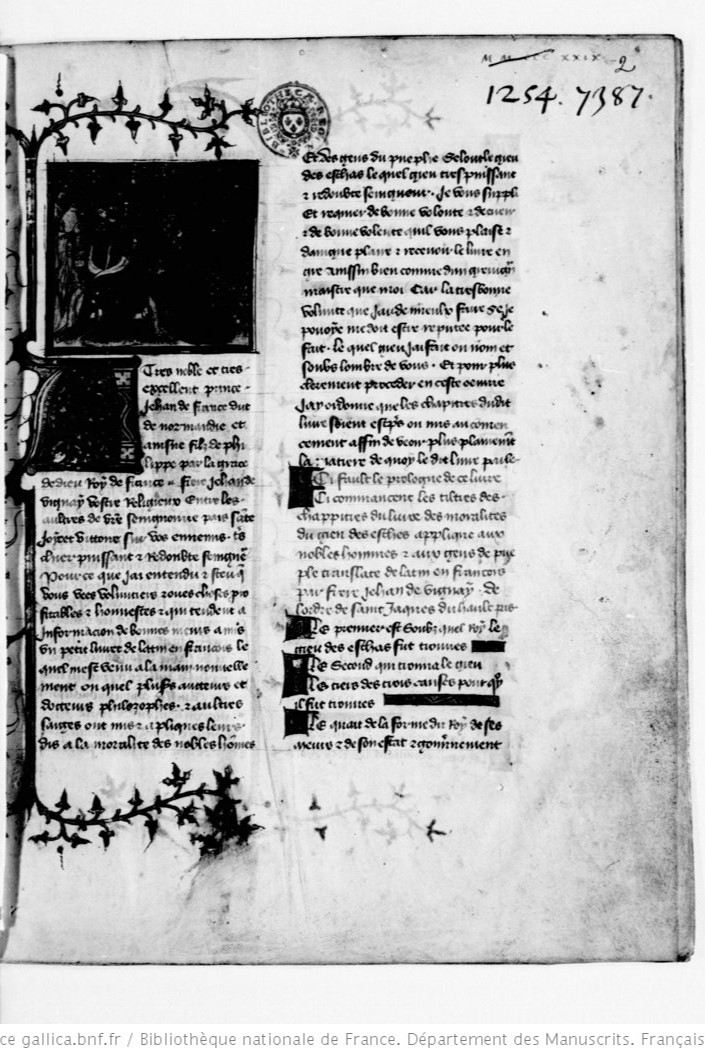 MM CCC XXIX
2
1254. 7387.
BIBLIOTHECAE REGIAE
A Tres noble et tres
excellent prince
Jehan de france duc
de normandie et
ainsne filz de phi
lippe par la grace
de dieu Roy de france frere Jehan de
vignay vostre Religieux Entre les
aultres de vre seingnourie pais sante
Joye et victoire sur vos ennemis. tres
chier puissant & Redoubte seingneur
Pour ce que Jai entendu & sceu que
vous vees voluntiers & oues choses pro
fitables & honnestes & qui tendent a
Informacion de bonnes meurs a mis
vn petit livret de latin en francois le
quel mest venu a la main nouvelle
ment ou quel plusrs aucteurs et
docteurs philozophes & aultres
saiges ont mis & appliques leurs
dis a la moralite des nobles hommes
Et des gens du pueple Selonc le gieu
des eschas le quel gieu tres puissant
& redoubte seingneur. Je vous suppli
Et requier de bonne volonte & de cuer
& de bonne volente quil vous plaise &
daingne plaire & recevoir le livre en
gre aussi bien comme dun greingn
maistre que moi Car la tres bonne
volunte que Jai de mieulx faire se Je
pouoye me doit estre reputee pour le
fait. le quel gieu Jai fait ou nom et
soubs lombre de vous. Et pour plus
clerement proceder en ceste oeuvre
Jay ordonne que les chapitres du dit
livre soient escrips ou mis au comen
cement affin de veoir plus plainemt
la matiere de quoy le dit livre parle
Ci fault le prologue de ce livre
Ci commancent les tiltres des
chappitres du livre des moralites
du gieu des esches applique aux
nobles hommes & aux gens de pue
ple translate de latin en francois
par frere Jehan de vignay. de
lordre de saint Jaques du hault pas
Le premier est Soubz quel Roy le
gieu des eschas fut trouves
Le Second qui trouva le gieu
Le tiers des trois causes pour quoy
il fut trouves
Le quart de la forme du Roy de ses
meurs & de son estat & gouvrnement
ce gallica.bnf.fr / Bibliothèque nationale de France. Département des Manuscrits. Français